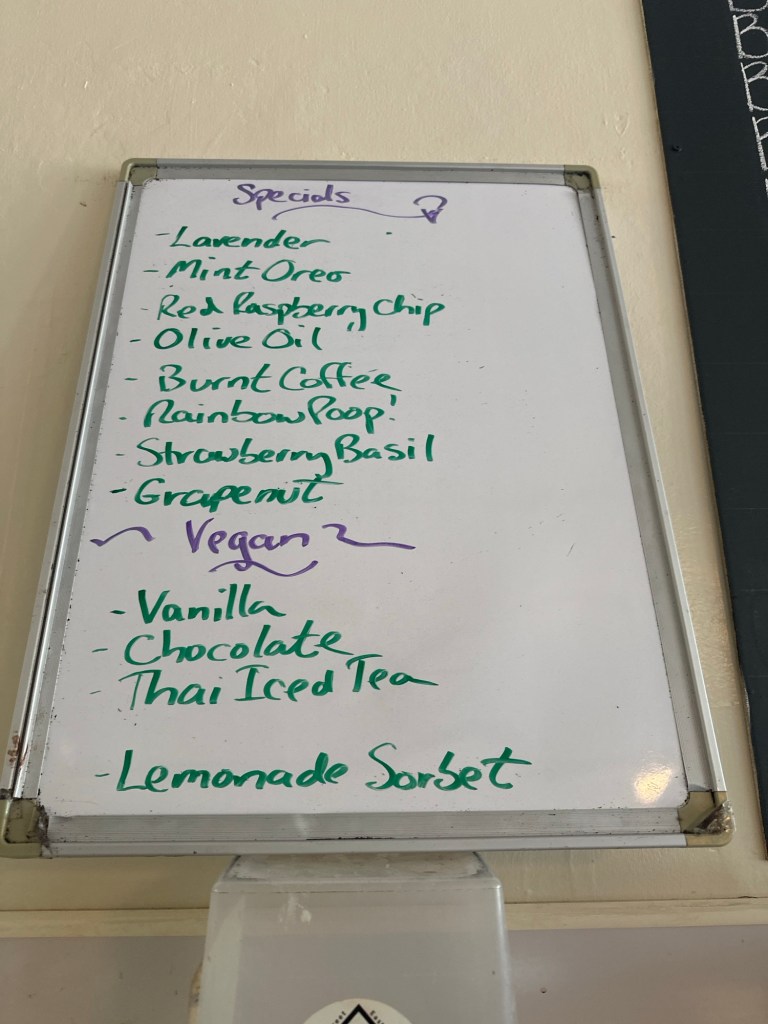 Specials
- Lavender
- Mint Oreo
- Red Raspberry Chip
- Olive Oil
- Burnt Coffee
- Rainbow Poop!
- Strawberry Basil
- Grapenut
~ Vegan ~
- Vanilla
- Chocolate
- Thai Iced Tea
- Lemonade Sorbet